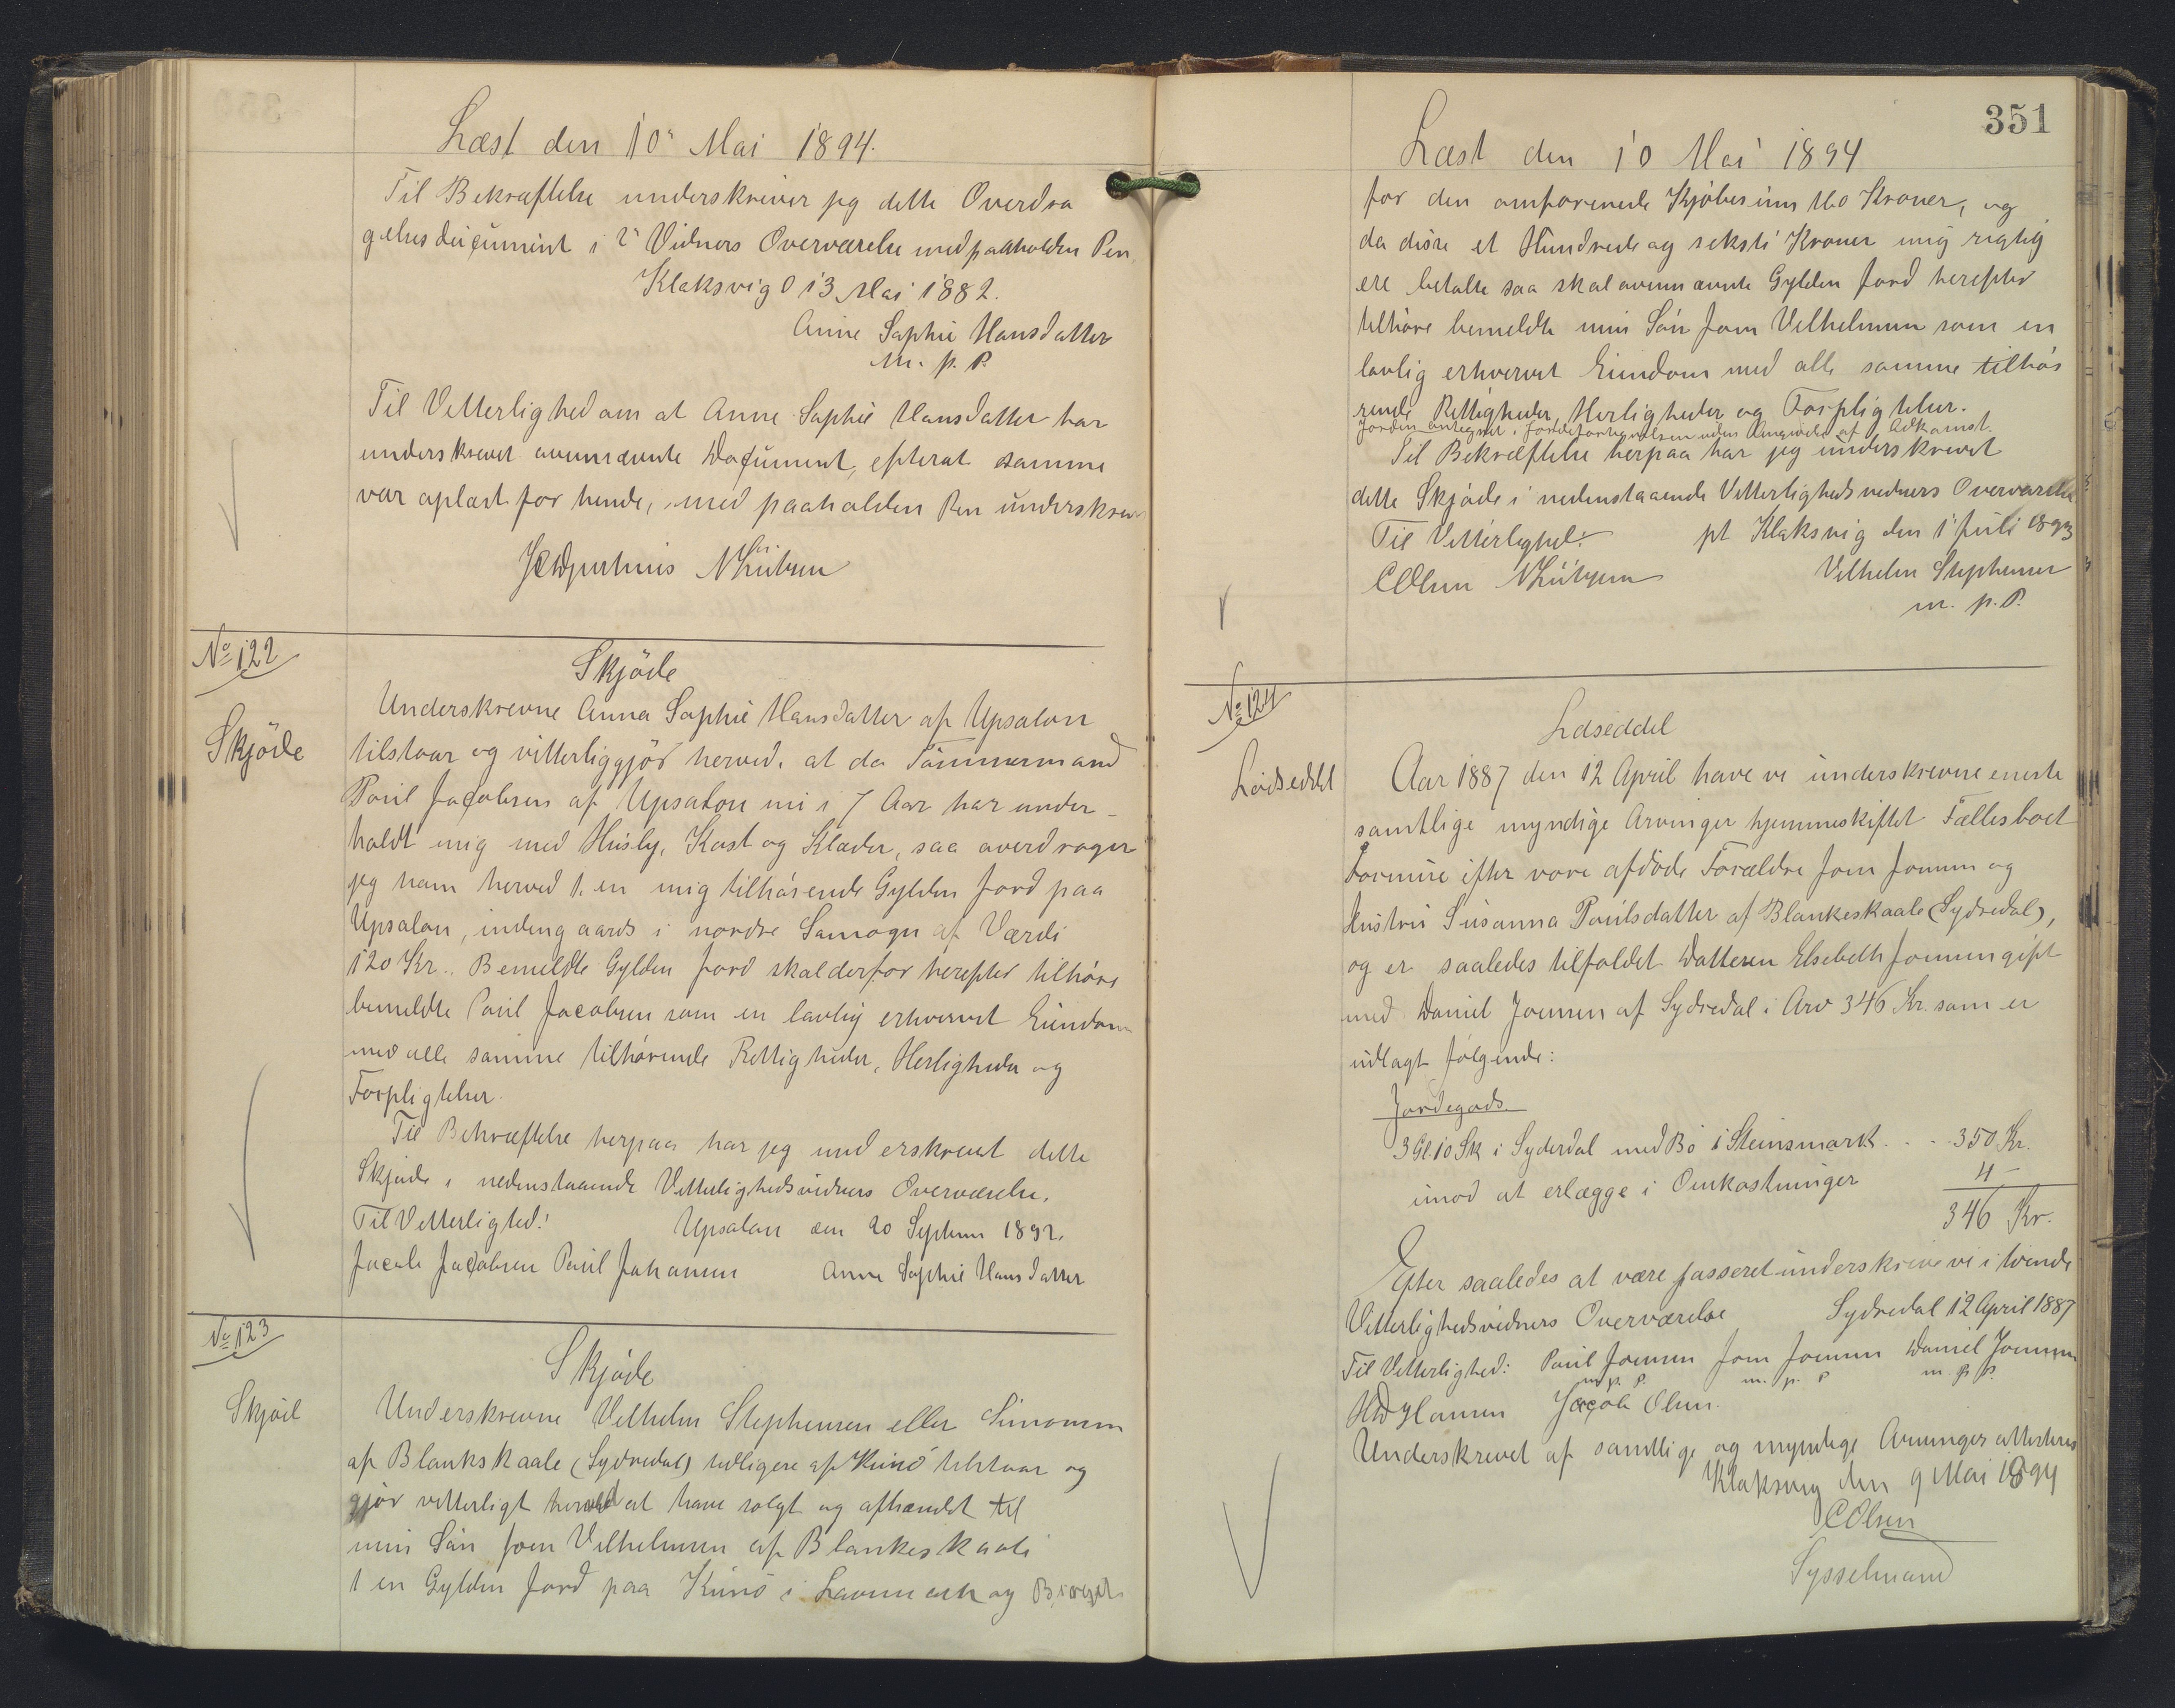 Læst den 10 Mai 1894.
Til Bekræftelse underskriver jeg dette Overdra
gelsesdocument i 2 Vidners Overværelse med paaholden Pen.
Klaksvig d 13 Mai 1882.
Anne Sophie Hansdatter
m. p. P.
Til Vitterlighed om at Anne Sophie Hansdatter har
underskrevet ovennævnte Document, efterat samme
var oplæst for hende, med paaholden Pen underskrev
No 122
Skjöde
Skjöde
Underskrevne Anna Sophie Hansdatter af Upsalon
tilstaar og vitterliggjör herved, at da Tömmermand
Poul Jacobsen af Upsalon nu i 7 Aar har under-
holdt mig med Husly, Kost og Klæder, saa overdrager
jeg ham herved 1. en mig tilhörende Gylden Jord paa
Upsalon, indengaards i nordre Samogn af Værdi
120 Kr. Bemeldte Gylden Jord skal derfor herefter tilhöre
bemeldte Poul Jacobsen som en lovlig erhvervet Eiendom
med alle samme tilhörende Rettigheder, Herligheder og
Forpligtelser.
Til Bekræftelse herpaa har jeg underskrevet dette
Skjöde i nedenstaaende Vitterlighedsvidners Overværelse.
Til Vitterlighed! Upsalon den 20 Septem 1892.
Jacob Jacobsen Poul Johansen Anne Sophie Hansdatter
No 123
Skjöde
Skjöd
Underskrevne Vilhelm Stephensen eller Simonsen
af Blankskaale (Sydredal) tidligere af Kunö tilstaar og
gjör vitterligt herved at have solgt og afhændet til
min Sön Joen Vilhelmsen af Blankeskaale
1 en Gylden Jord paa Kunö i
351
Læst den 10 Mai 1894
for den omforenede Kjöbesum 160 Kroner, og
da disse et Hundrede og seksti Kroner mig rigtig
ere betalte saa skal ovennævnte Gylden Jord herefter
tilhöre bemeldte min Sön Joen Vilhelmsen som en
lovlig erhvervet Eiendom med alle samme tilhö
rende Rettigheder, Herligheder og Forpligtelser.
Jorden antegnet i Jordefortegnelsen uden Angivelse af Adkomst.
Til Bekræftelse herpaa har jeg underskrevet
dette Skjöde i nedenstaaende Vitterlighedsvidners Overværelse
Til Vitterlighed: pt Klaksvig den 1 Juli 1893
COlsen Vilhelm Stephensen
m. p. P.
No 124
Lodseddel
Lodseddel
Aar 1887 den 12 April have vi underskrevne eneste
samtlige myndige Arvinger hjemmeskiftet Fællesboet
Formue efter vore afdöde Forældre Joen Joensen og
Hustru Susanna Poulsdatter af Blankeskaale (Sydredal),
og er saaledes tilfaldet Datteren Elsebeth Joensen gift
med Daniel Joensen af Sydredal i Arv 346 Kr. som er
udlagt fölgende:
Jordegods.
3 Gl. 10 Sk i Syderdal med Bö i Steinsmark . . . 350 Kr.
imod at erlægge i Omkostninger 4 –
346 Kr.
Efter saaledes at være passeret underskrive vi i tvende
Vitterlighedsvidners Overværelse Sydredal 12 April 1887
Til Vitterlighed: Poul Joensen Joen Joensen Daniel Joensen
m. p. P. m. p. P m. p. P.
Jacob Olsen.
Underskrevet af samtlige og myndige Arvinger attesteres
Klaksvig den 9 Mai 1894
COlsen
Sysselmand